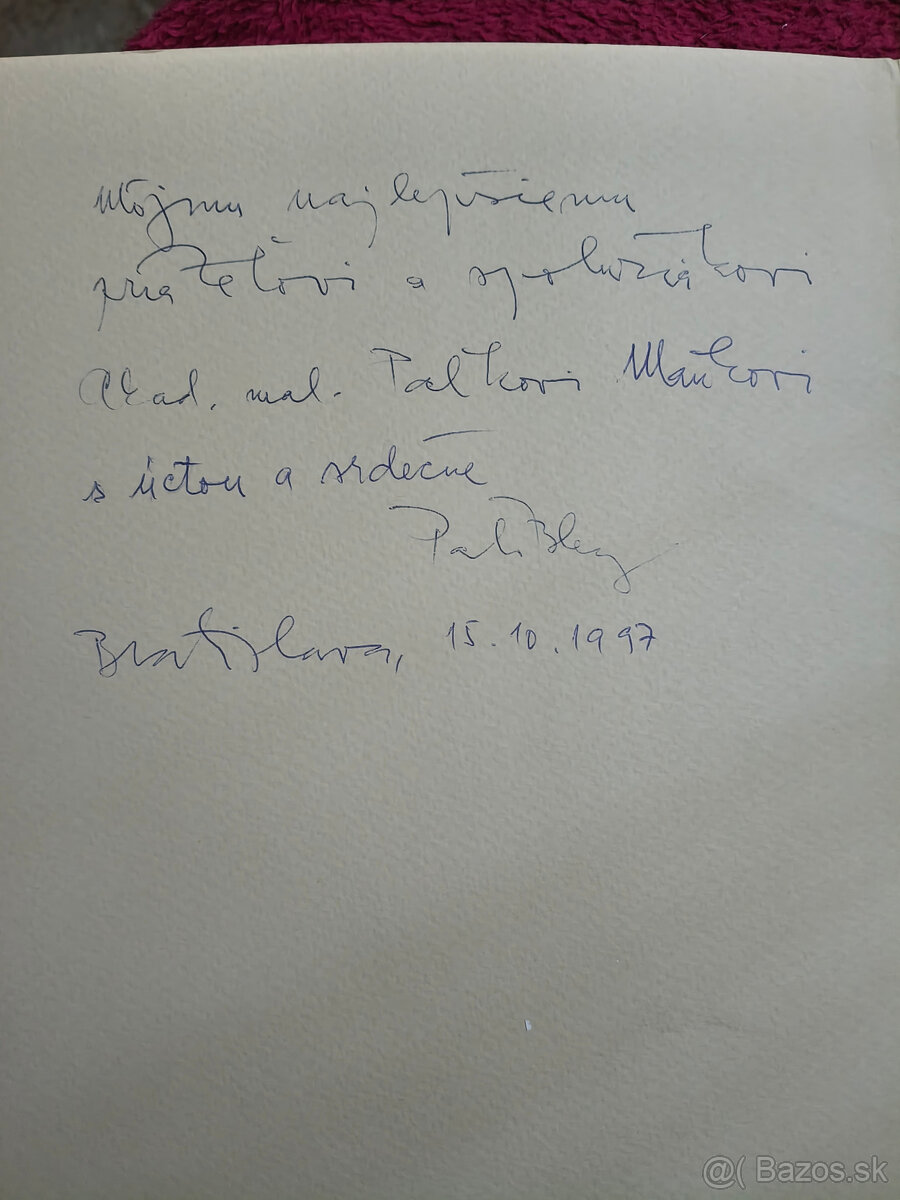 Môjmu najlepšiemu
priateľovi a spolužiakovi
Akad. mal. Paľkovi Maňkovi
s úctou a srdečne
Paľo
Bratislava, 15.10.1997
@( Bazos.sk